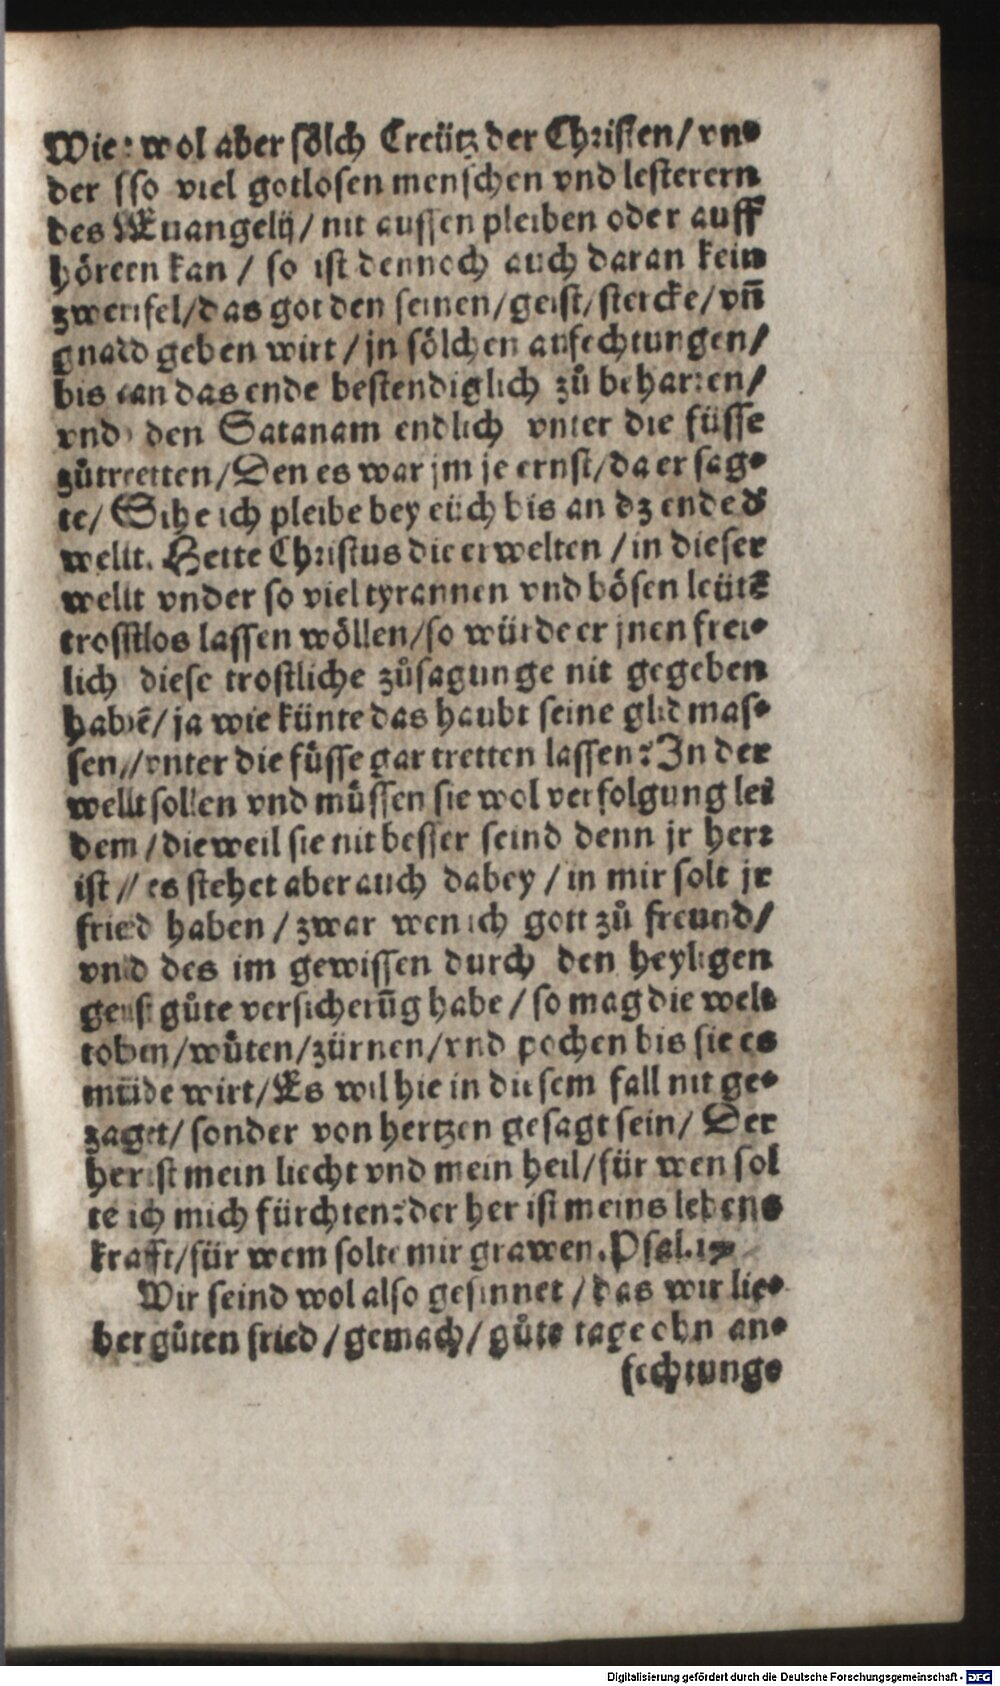 Wie wol aber sölch Creütz der Christen/ vn-
der so viel gotlosen menschen vnd lesterern
des Euangelij/ nit aussen pleiben oder auff
hören kan/ so ist dennoch auch daran kein
zweifel/ das got den seinen/ geist/ stercke/ vñ
gnad geben wirt/ jn sölchen anfechtungen/
bis an das ende bestendiglich zů beharren/
vnd den Satanam endlich vnter die füsse
zůtretten/ Den es war jm je ernst/ da er sag-
te/ Sihe ich pleibe bey eüch bis an dz ende d'
wellt. Hette Christus die erwelten/ in dieser
wellt vnder so viel tyrannen vnd bösen leütẽ
trostlos lassen wöllen/ so würde er jnen frei-
lich diese trostliche zůsagunge nit gegeben
habẽ/ ja wie künte das haubt seine glidmas-
sen/ vnter die füsse gar tretten lassen? In der
wellt sollen vnd müssen sie wol verfolgung lei
den/ die weil sie nit besser seind denn jr herr
ist/ es stehet aber auch dabey/ in mir solt jr
fried haben/ zwar wen ich gott zů freund/
vnd des im gewissen durch den heyligen
geist gůte versicherũg habe/ so mag die welt
toben/ wůten/ zürnen/ vnd pochen bis sie es
müde wirt/ Es wil hie in diesem fall nit ge-
zaget/ sonder von hertzen gesagt sein/ Der
her ist mein liecht vnd mein heil/ für wen sol
te ich mich fürchten? der her ist meins lebens
krafft/ für wem solte mir grawen. Psal.
Wir seind wol also gesinnet/ das wir lie-
ber gůten fried/ gemach/ gůte tage ohn an-
fechtunge
Digitalisierung gefördert durch die Deutsche Forschungsgemeinschaft - DFG